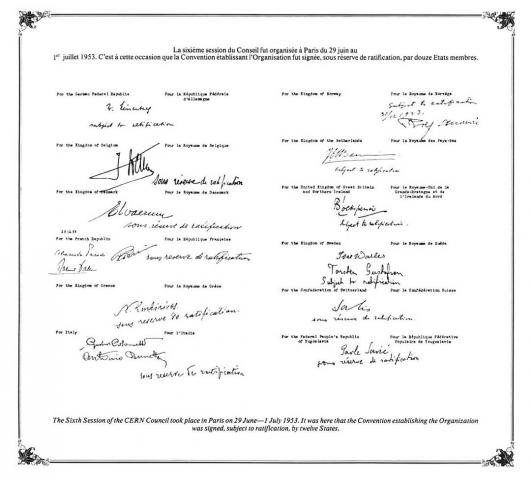 La sixième session du Conseil fut organisée à Paris du 29 juin au
1er juillet 1953. C'est à cette occasion que la Convention établissant l'Organisation fut signée, sous réserve de ratification, par douze Etats membres.
For the German Federal Republic Pour la République Fédérale
d'Allemagne
subject to ratification
For the Kingdom of Belgium Pour le Royaume de Belgique
sous réserve de ratification
For the Kingdom of Denmark Pour le Royaume de Danemark
sous réserve de ratification
For the French Republic Pour la République Française
sous réserve de ratification
For the Kingdom of Greece Pour le Royaume de Grèce
sous réserve de ratification.
For Italy Pour l'Italie
Gustavo Colonnetti
sous réserve de ratification
For the Kingdom of Norway Pour le Royaume de Norvège
Subject to ratification
For the Kingdom of the Netherlands Pour le Royaume des Pays-Bas
subject to ratification
For the United Kingdom of Great Britain Pour le Royaume-Uni de la
and Northern Ireland Grande-Bretagne et de
l'Irlande du Nord
subject to ratification.
For the Kingdom of Sweden Pour le Royaume de Suède
Torsten Gustafson
Subject to ratification
For the Confederation of Switzerland Pour la Confédération Suisse
sous réserve de ratification
For the Federal People's Republic Pour la République Fédérative
of Yugoslavia Populaire de Yougoslavie
Pavle Savić
sous réserve de ratification
The Sixth Session of the CERN Council took place in Paris on 29 June—1 July 1953. It was here that the Convention establishing the Organization
was signed, subject to ratification, by twelve States.